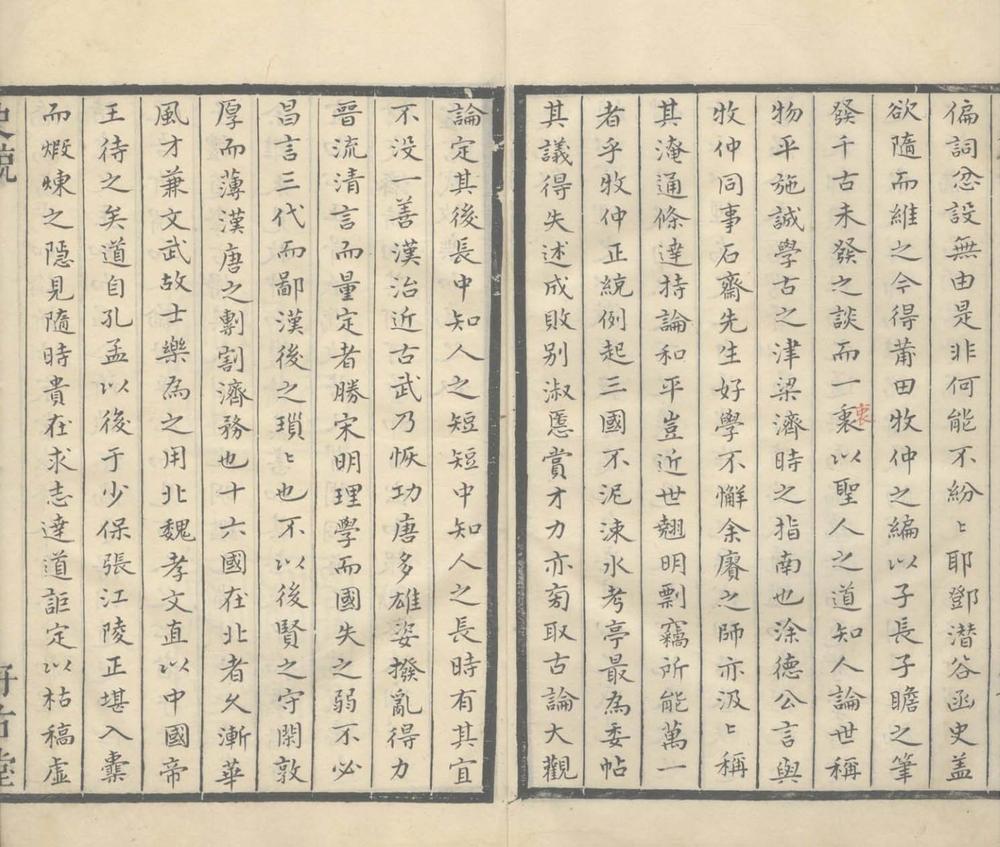 偏詞忿設無由是非何能不紛〻耶鄧潛谷函史蓋
欲隨而維之今得莆田牧仲之編以子長子瞻之筆
發千古未發之談而一裏以聖人之道知人論世稱
衷
物平施誠學古之津梁濟時之指南也涂德公言與
牧仲同事石齋先生好學不懈余賡之師亦汲〻稱
其淹通條達持論和平豈近世翹明剽竊所能萬一
者乎牧仲正統例起三國不泥涑水考亭最為委帖
其議得失述成敗别淑慝賞才力亦匄取古論大觀
論定其後長中知人之短短中知人之長時有其宜
不没一善漢治近古武乃恢功唐多雄姿撥亂得力
晉流清言而量定者勝宋明理學而國失之弱不必
昌言三代而鄙漢後之瑣〻也不以後賢之守閑敦
厚而薄漢唐之剸割濟務也十六國在北者久漸華
風才兼文武故士樂為之用北魏孝文直以中國帝
王待之矣道自孔孟以後于少保張江陵正堪入橐
而煅煉之隱見隨時貴在求志達道詎定以枯稿虛